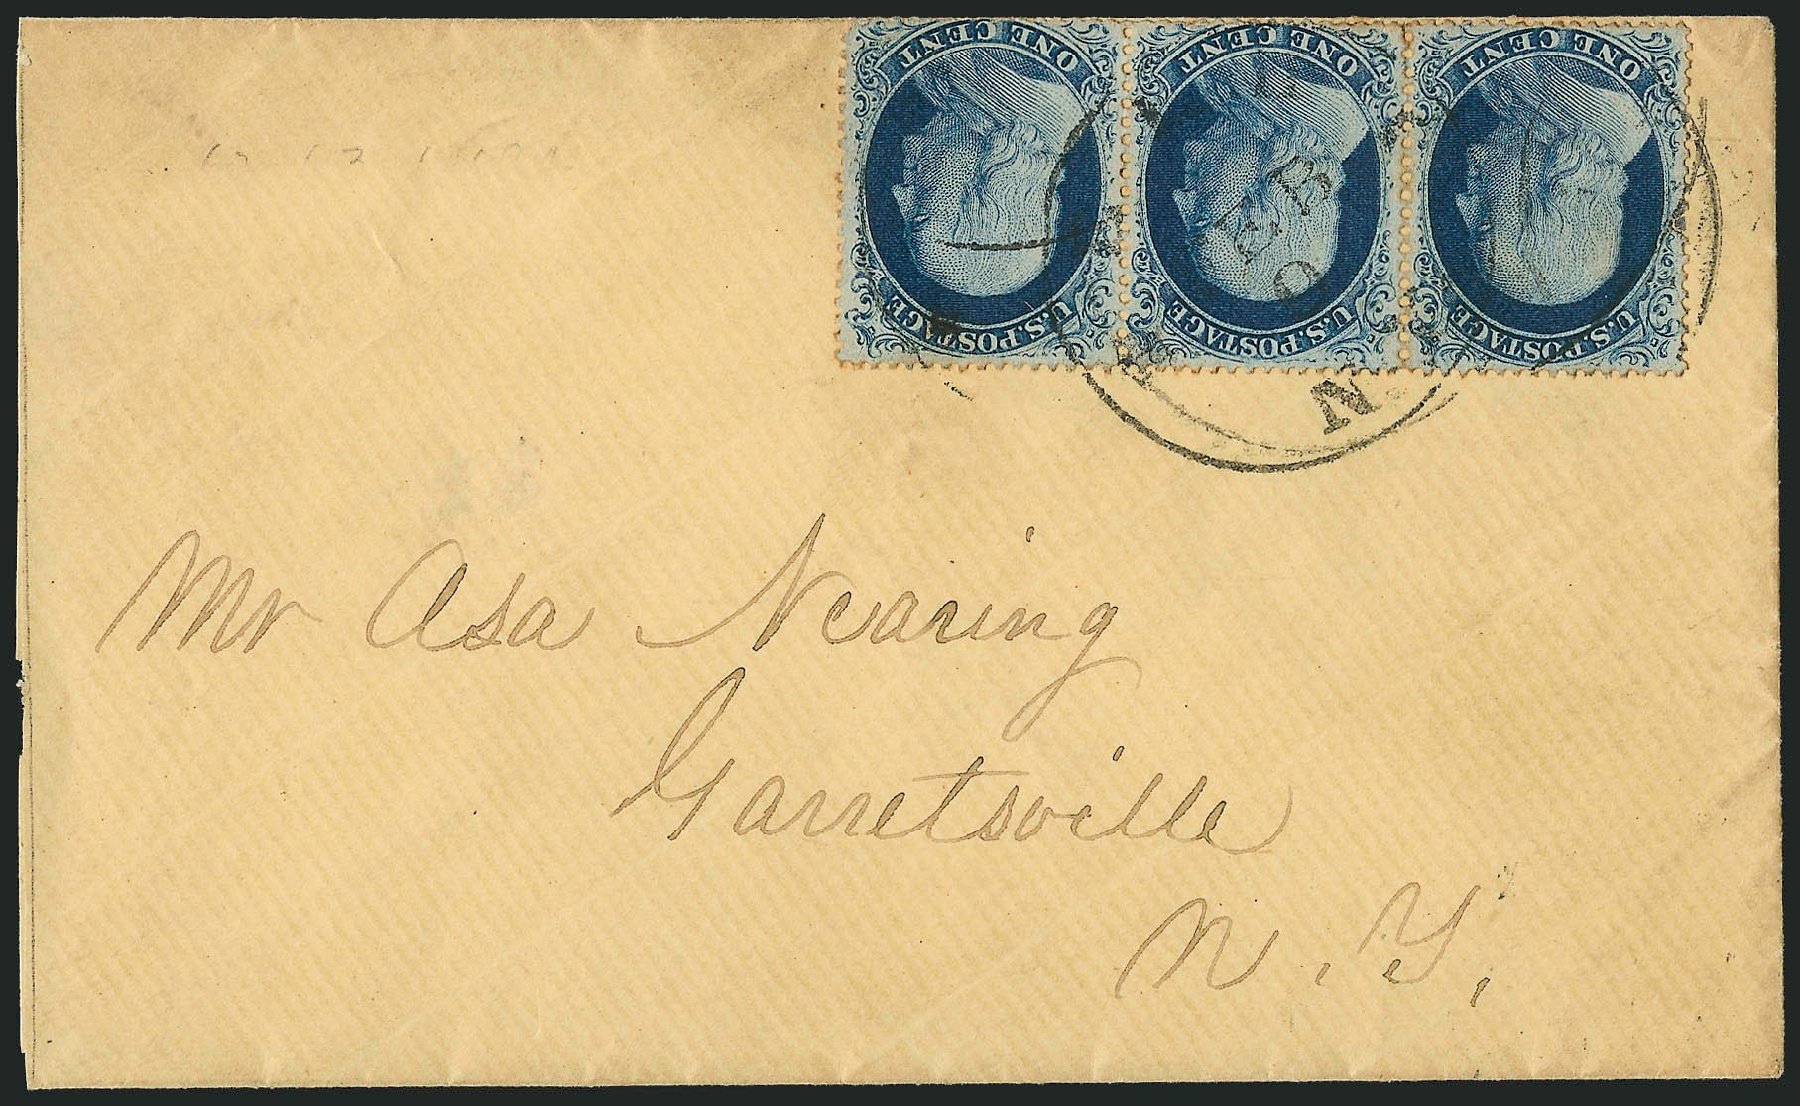 ONE CENT ONE CENT ONE CENT
U.S. POSTAGE U.S. POSTAGE U.S. POSTAGE
FEB
N.
Mr Asa Nearing
Garretsville
N. Y.